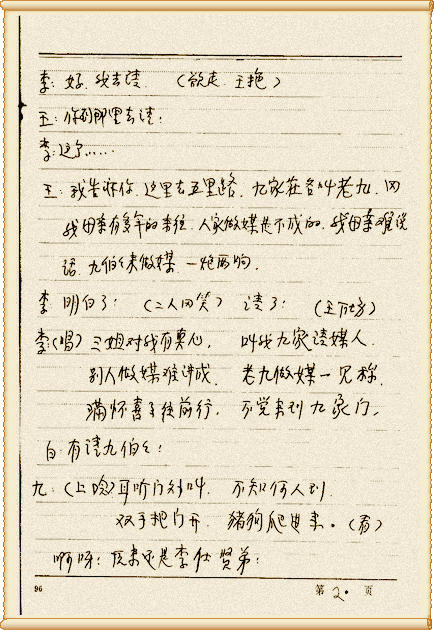 李：好，我去请。（欲走，王拖）
王：你到那里去请：
李：这个……
王：我告诉你，这里去五里路，九家庄名叫老九，同
我母亲有多年的来往，人家做媒是不成的，我母亲难说
话，九伯伯来做媒，一炮而响。
李：明白了！（二人同笑）请了！（王下场）
李（唱）三姐对我有真心，叫我九家请媒人。
别人做媒难讲成，老九做媒一见称，
满怀喜气往前行，不觉来到九家门。
白：有请九伯伯！
九：（上唸）耳听门外叫，不知何人到，
双手把门开，猪狗爬出来。（看）
啊呀！原来还是李 贤弟：
96 第 2 页